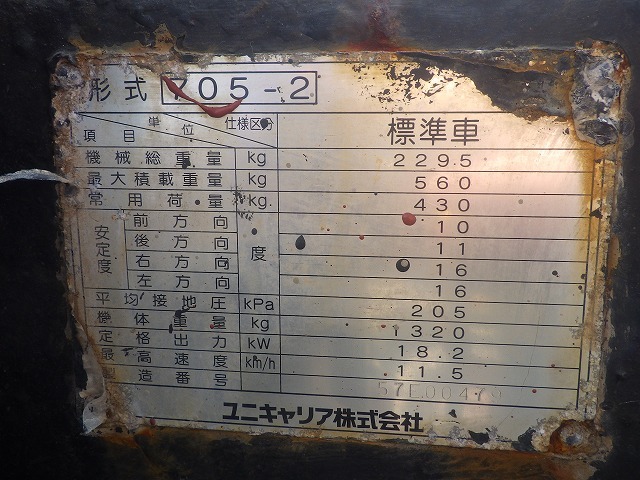 形式 705-2
単位 仕様区分
項目 標準車
機械総重量 kg 2295
最大積載重量 kg 560
常用荷重 kg 430
安定度 前方向 度 10
後方向 11
右方向 16
左方向 16
平均接地圧 kPa 205
機体重量 kg 1320
定格出力 kW 18.2
最高速度 km/h 11.5
製造番号
ユニキャリア株式会社